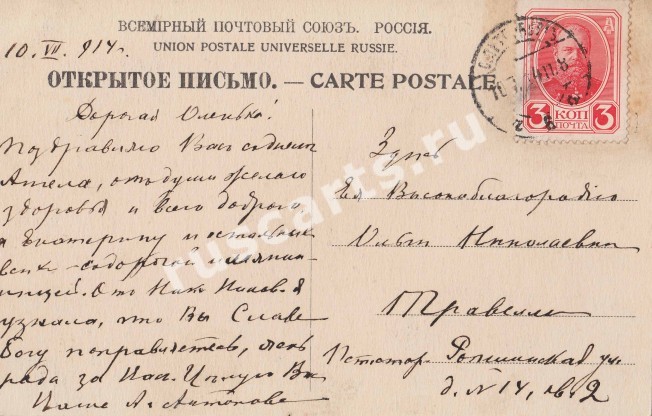 ВСЕМІРНЫЙ ПОЧТОВЫЙ СОЮЗЪ. РОССІЯ.
10. VII. 914 г.
UNION POSTALE UNIVERSELLE RUSSIE.
ОТКРЫТОЕ ПИСЬМО. — CARTE POSTALE
3 КОП 3
ПОЧТА
Дорогая Оленька!
Поздравляю Васъ съ днемъ
Ангела, отъ души желаю
здоровья и всего доброго,
и Екатерину и остальныхъ
всѣхъ съ дорогой имянин-
ницей. Отъ
узнала, что Вы Слава
Богу поправляетесь, очень
рада за Васъ. Цѣлую Васъ
Ваша А. Антонова
Здѣсь
Ея Высокоблагородію
Ольгѣ Николаевнѣ
Травелле
Петер. Ропшинская ул.
д. № 14, кв. 2
ruscarts.ru